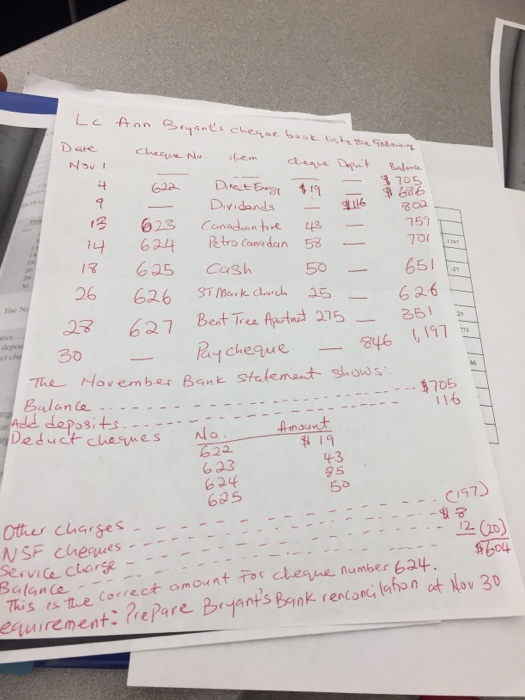 Lc Ann Bryant's cheque book lists the following
Date Cheque No item cheque Deposit Balance
Nov 1 — — $705
4 622 Direct Energy $19 — $686
9 — Dividends — $116 802
13 623 Canadian tire 43 — 759
14 624 Petro Canadan 58 — 701
18 625 Cash 50 — 651
26 626 ST Mark Church 25 — 626
28 627 Bent Tree Apartment 275 — 351
30 — Paycheque — 846 1,197
The November Bank Statement shows:
Balance $705
Add deposits 116
Deduct cheques No. Amount
622 $19
623 43
624 85
625 50 (197)
Other charges
NSF Cheques $8
Service Charge 12 (20)
Balance $604
This is the correct amount for cheque number 624.
equirement: Prepare Bryant's Bank renconcilation at Nov 30